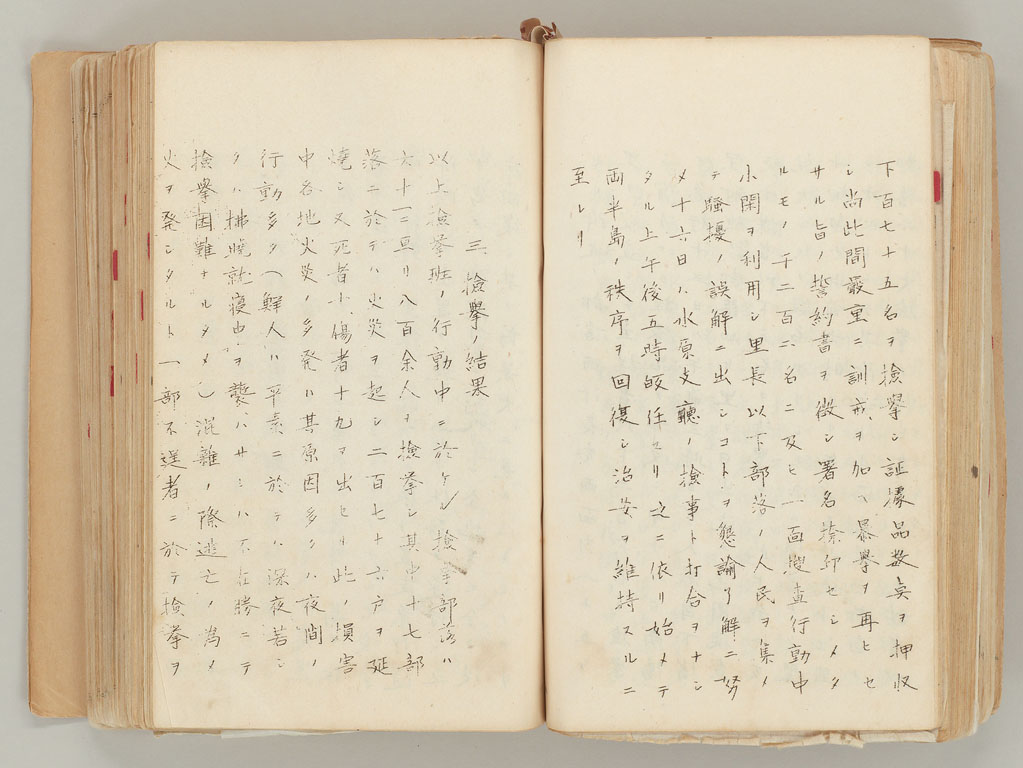 下百七十五名ヲ検挙シ証拠品数点ヲ押収
シ尚此間最重ニ訓戒ヲ加ヘ暴挙ヲ再ヒセ
サル旨ノ誓約書ヲ徴シ署名捺印セシメタ
ルモノ千二百二名ニ及ヒ一面捜査行動中
小閑ヲ利用シ里長以下部落ノ人民ヲ集メ
テ騒擾ノ誤解ニ出シコトヲ懇諭了解ニ努
メ十六日ハ水原支廳ノ検事ト打合ヲナシ
タル上午後五時皈任セリ之ニ依リ始メテ
両半島ノ秩序ヲ回復シ治安ヲ維持スルニ
至レリ
三 検挙ノ結果
以上検挙班ノ行動中ニ於ケル検挙部落ハ
六十二亘リ八百余人ヲ検挙シ其中十七部
落ニ於テハ火災ヲ起シ二百七十六戸ヲ延
焼シ又死者 傷者十九ヲ出セリ此ノ損害
中各地火災ノ多発ハ其原因多クハ夜間ノ
行動多ク（鮮人ハ平素ニ於テハ深夜若シ
クハ拂暁就寝中ヲ襲ハサレハ不在勝ニテ
検挙困難ナルタメ）混雑ノ際逃亡ノ為メ
火ヲ発シタルト一部不逞者ニ於テ検挙ヲ